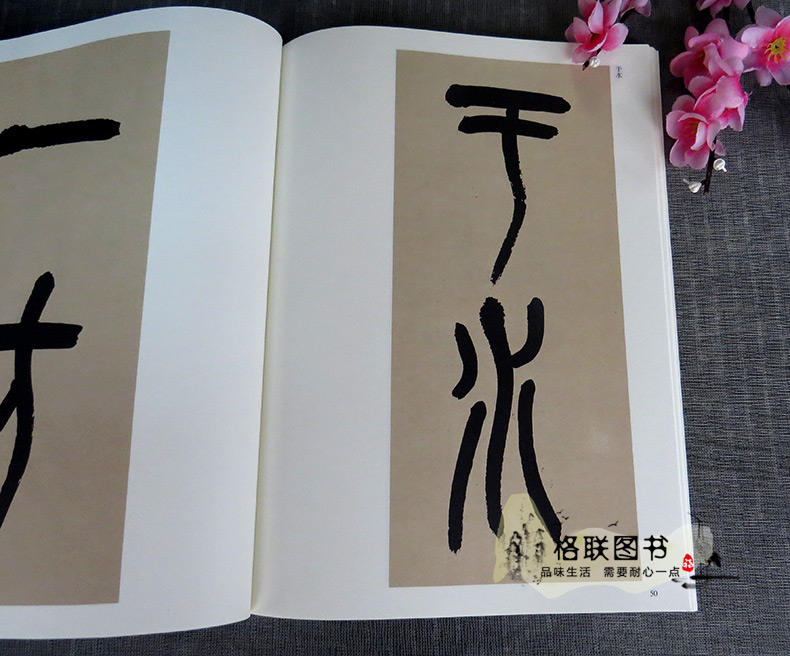 于水
于水
格联图书
品味生活 需要耐心一点
50